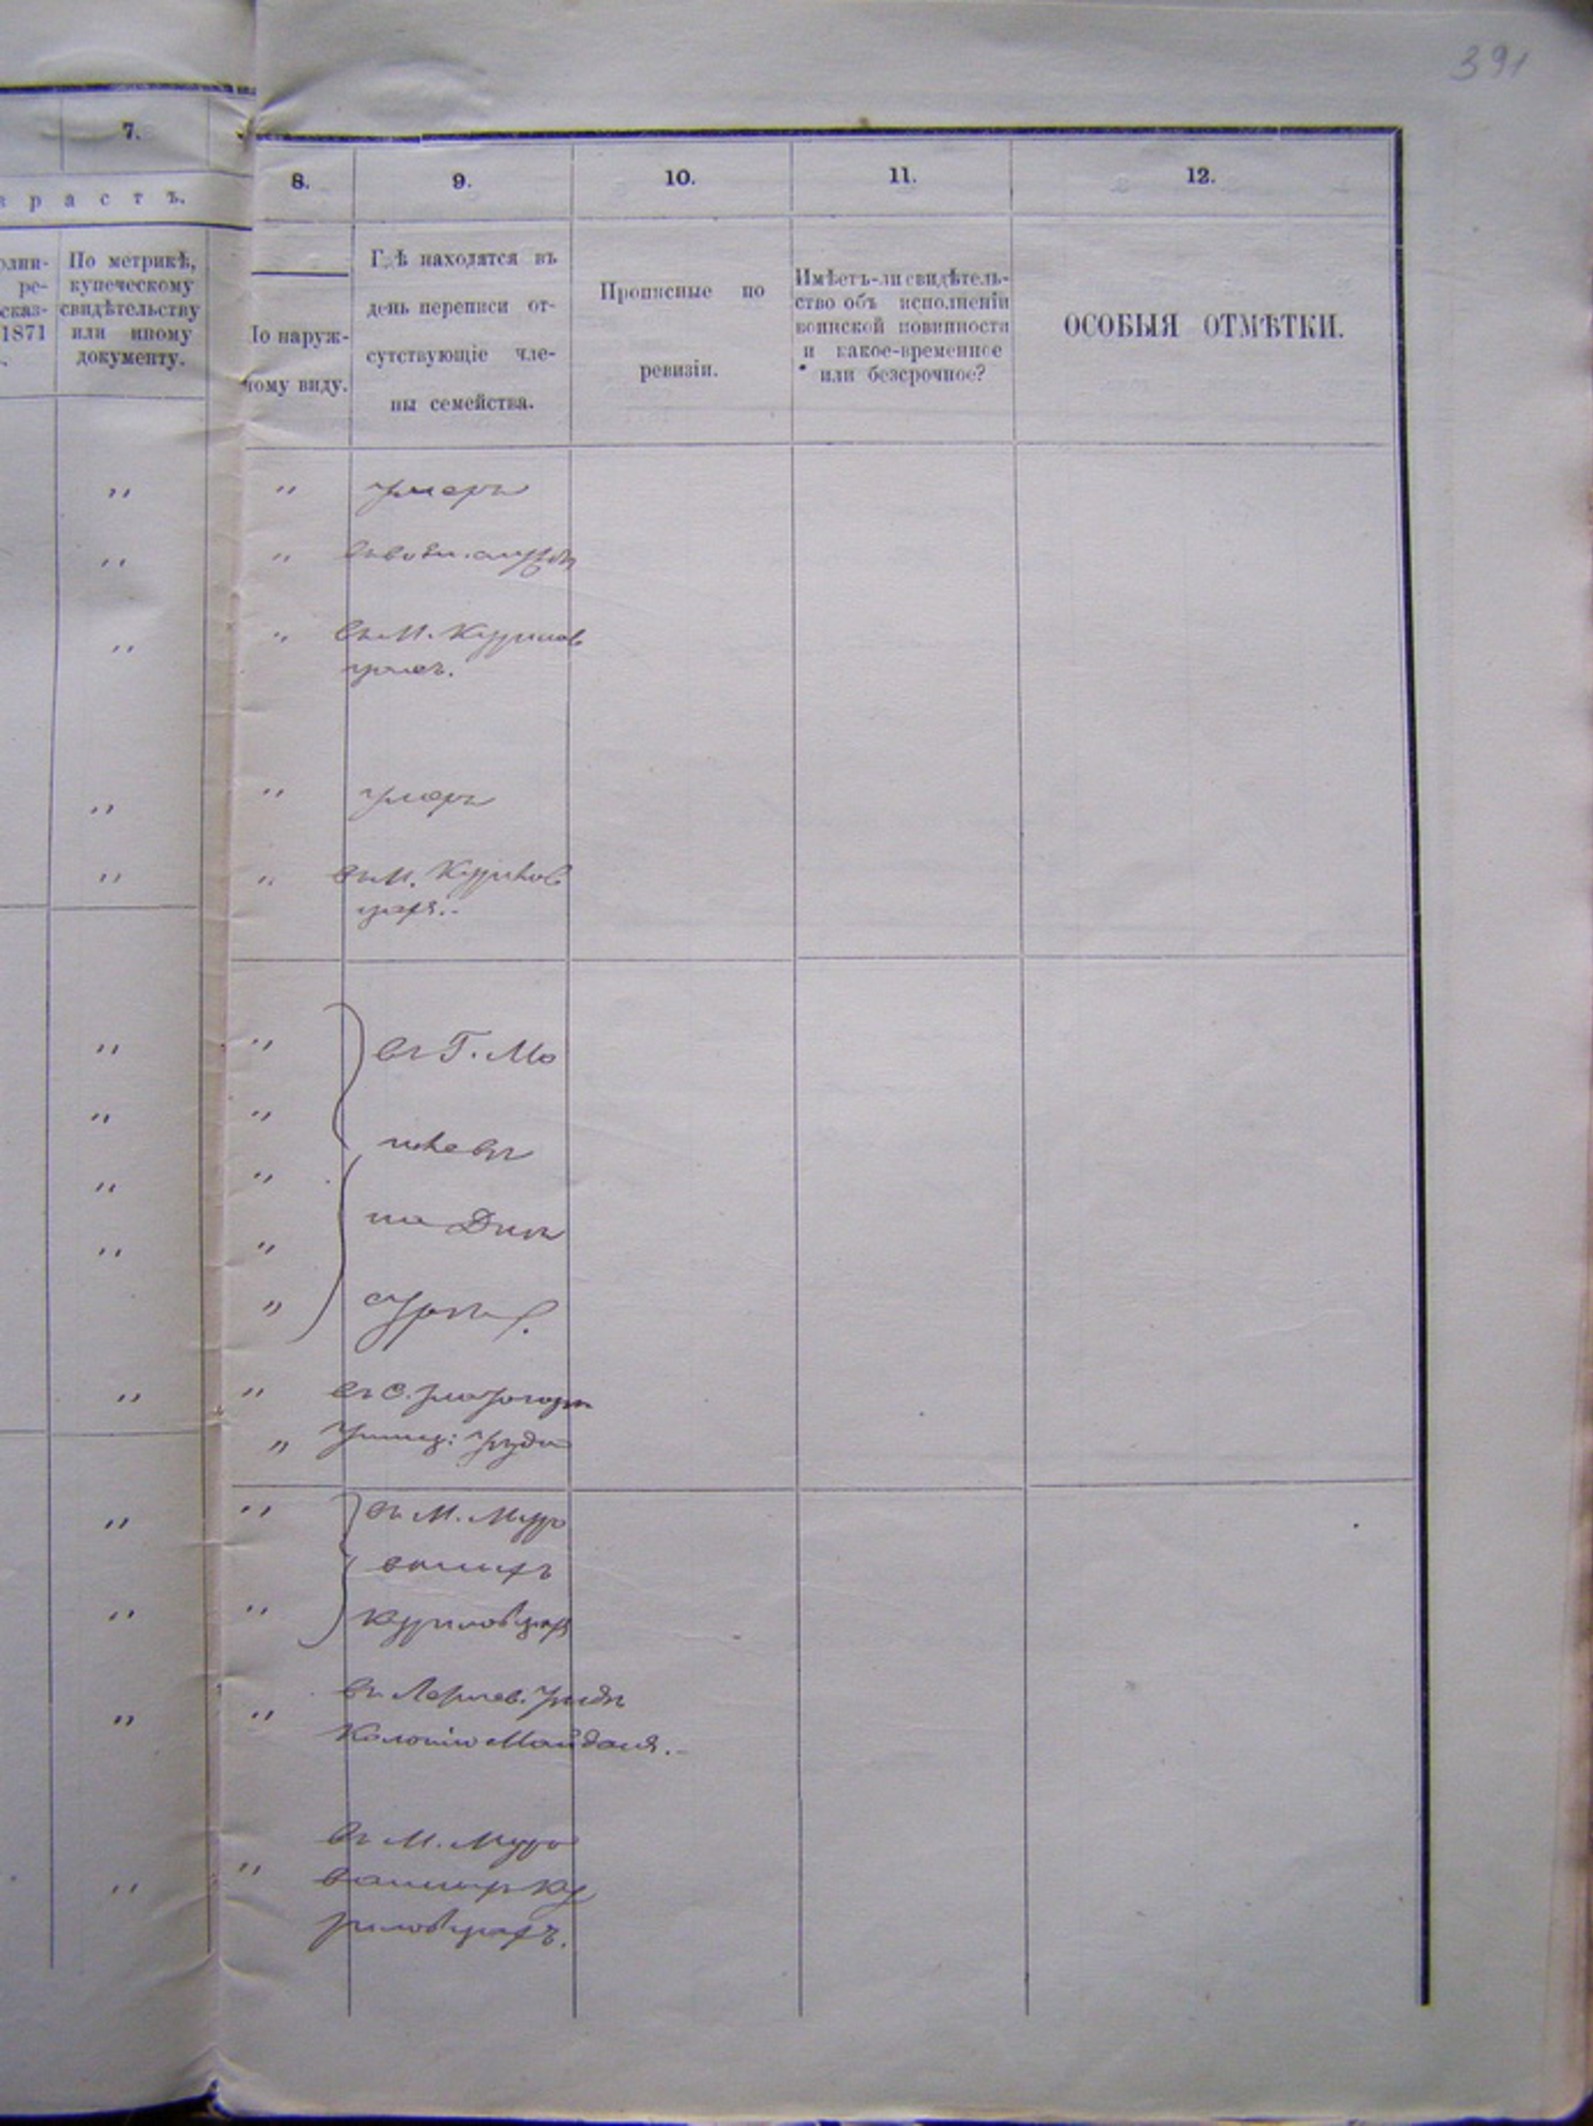 391
7.
8.
9.
10.
11.
12.
з р а с т ъ.
олни-
ре-
сказ-
1871
По метрикѣ,
купеческому
свидѣтельству
или иному
документу.
По наруж-
ному виду.
Гдѣ находятся въ
день переписи от-
сутствующіе чле-
ны семейства.
Прописные по
ревизіи.
Имѣетъ-ли свидѣтель-
ство объ исполненіи
воинской повинности
и какое-временное
или безсрочное?
ОСОБЫЯ ОТМѢТКИ.
" " умеръ
" "
" " въ М. Курилов
цахъ.
" " умеръ
" " въ М. Курилов
цахъ.
" " въ Г. Мо
" " гилевѣ
" " на Днѣ
" "
" стрѣ.
" " въ С.
"
" " въ М. Муро
ваныхъ
" " Куриловцахъ
" " въ Летичев. уѣздѣ
Колонію Майданъ.
въ М. Муро
" " ваныхъ Ку
риловцахъ.